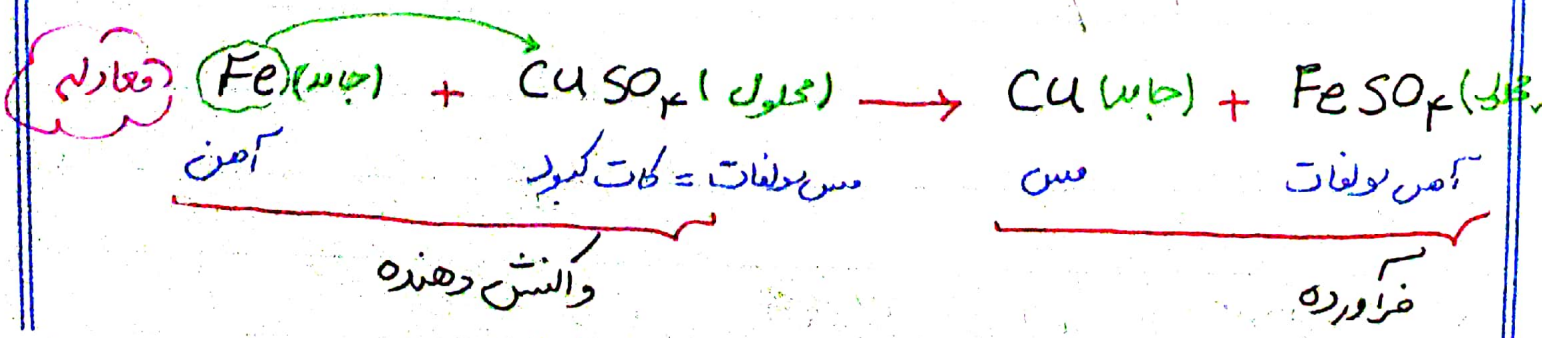 معادله Fe (جامد) + CuSO۴ (محلول) → Cu (جامد) + FeSO۴ (محلول)
آهن مس سولفات = کات کبود مس آهن سولفات
واکنش دهنده فرآورده